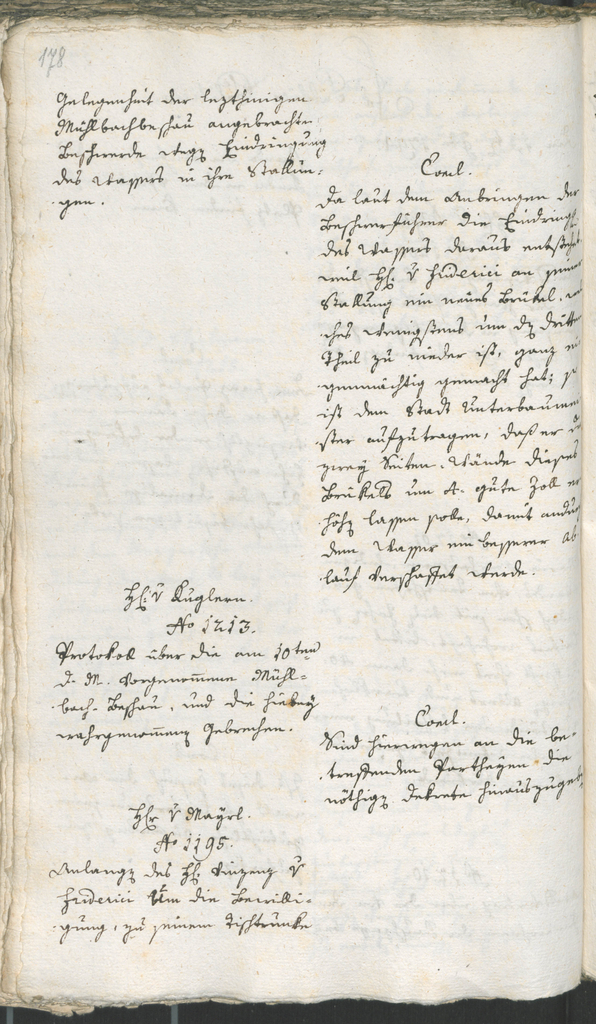 178
Gelegenheit der letzthinigen
Mühlbachbeschau angebrachte
Beschwerde wegen Eindringung
des Wassers in ihre Stallun-
gen.
Concl.
Da laut dem Anbringen der
Beschwerführer die Eindring
des Wassers daraus entsteht
weil H: v Friderici an seiner
Stallung ein neües Brükel, wel
ches wenigstens um den dritten
Theil zu nieder ist, ganz ei
genmächtig gemacht hat; so
ist dem Stadt Unterbaumei
ster aufzutragen, daß er die
zwey Seiten-Wände dieses
Brükels um 4. gute Zoll er
höhen lassen solle, damit
dem Wasser ein besserer Ab
lauf verschaffet werde.
H: v Kuglern.
No 1213.
Protokol über die am 10ten
d. M. vorgenommene Mühl-
bach-Beschau, und die hiebey
wahrgenommenen Gebrechen.
Concl.
Sind hierwegen an die be-
treffenden Partheyen die
nöthigen Dekrete hinauszugeben
Hr v Mayrl.
No 1195.
Anlangen des H: Vinzenz v
Friderici um die Bewilli-
gung, zu seinem Tischtrunke